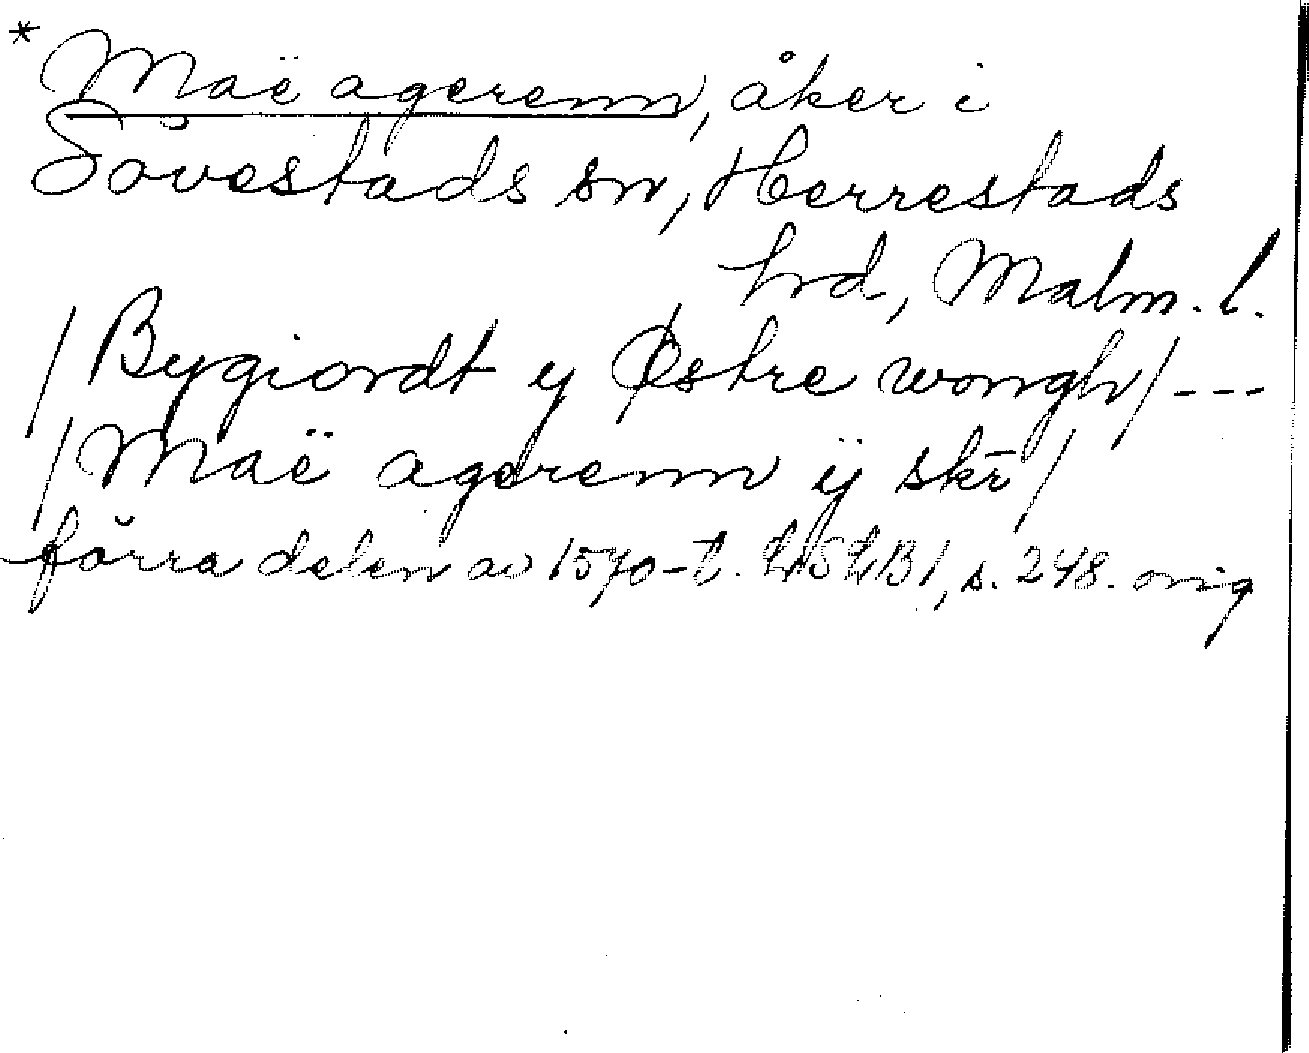 * Maë agerenn, åker i
Sövestads sn, Herrestads
hrd, Malm. l.
/Bygiordt y Østre wongh/---
/Maë agerenn ÿ skr̄/
förra delen av 1570-t. LiStB1, s. 248. orig